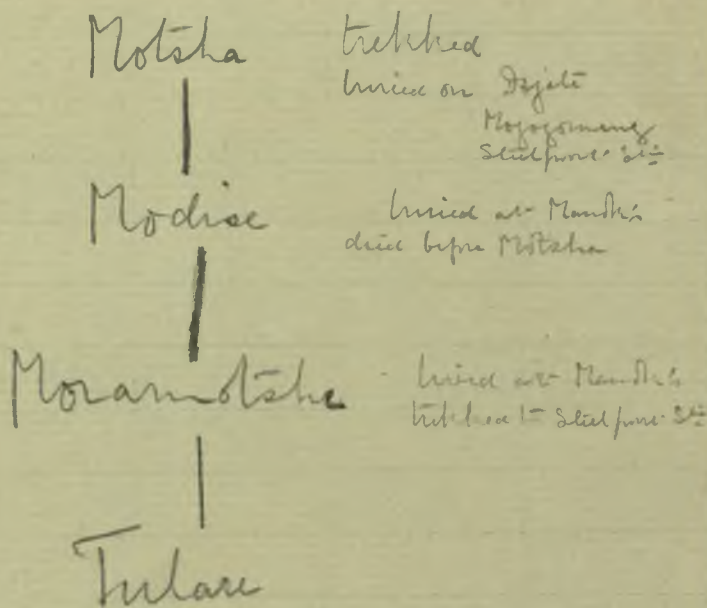 Motsha trekked
buried on Dsjate
Mogogomeng
Steelpoort Stn
Modise buried at Mandk's
died before Motsha
Moramotshe buried at Mandk's
trekked to Steelpoort Stn
Tulare